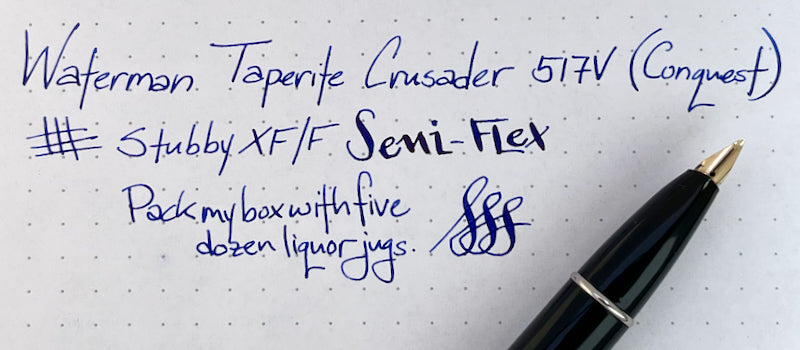 Waterman Taperite Crusader 517V (Conquest)
Stubby XF/F Semi-Flex
Pack my box with five
dozen liquor jugs.